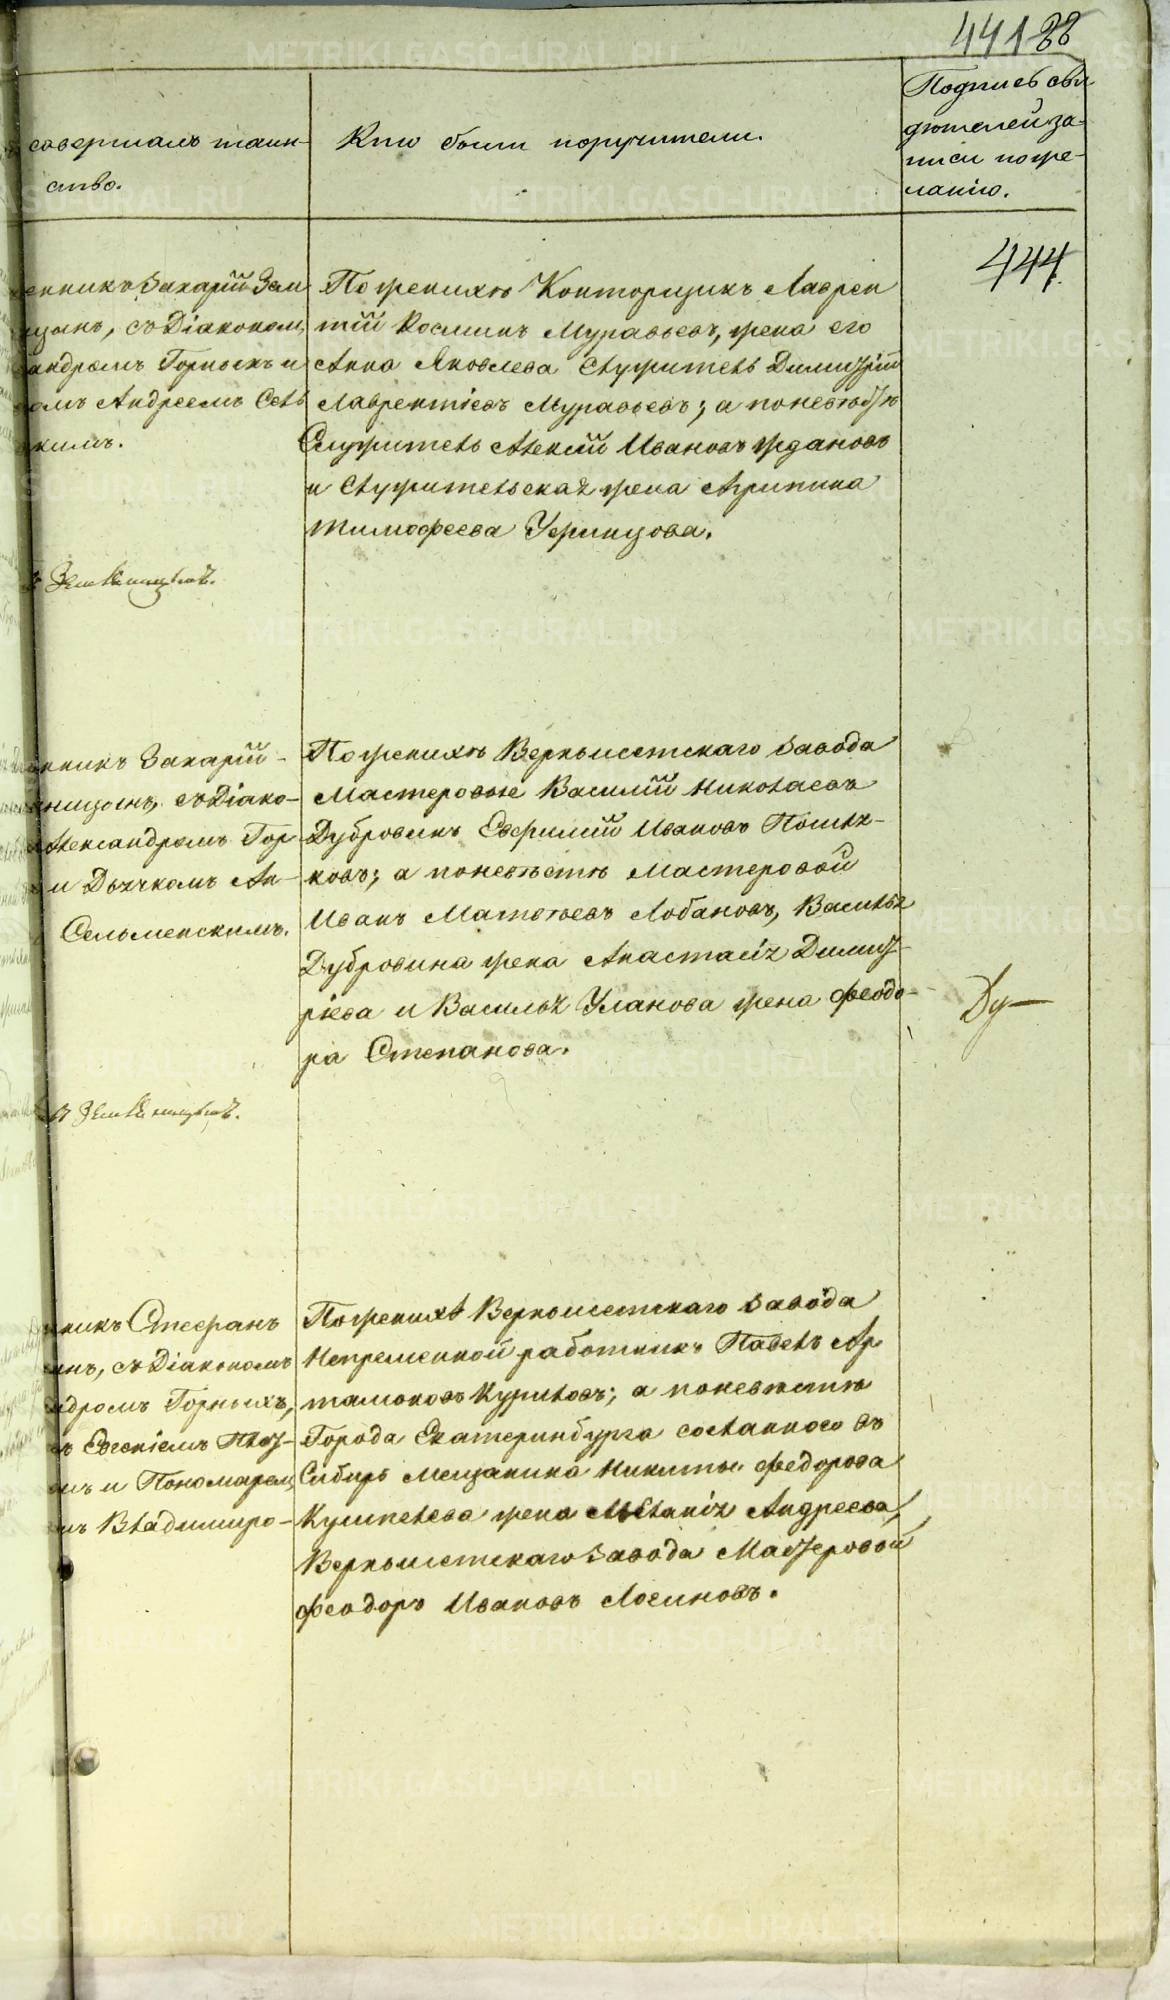 441 88
совершалъ таин-
ство.
Кто были поручители.
Подписъ сви
дѣтелей за-
писи поже-
ланію.
444.
енникъ Захарій Зем
ицынъ, съ Діакономъ
андромъ Горныхъ и
омъ Андреемъ Сель
скимъ.
По женихѣ Конторщикъ Лаврен
тій Косминъ Муравьевъ, жена его
Анна Яковлева Служитель Димитрій
Лаврентіевъ Муравьевъ; а по невѣстѣ
Служитель Алексій Ивановъ Ждановъ
и Служительская жена Агрипина
Тимофеева
нникъ Захарій
ницынъ, съ Діако-
Александромъ Гор
и Дьячкомъ Ан-
Сельменскимъ.
По женихѣ Верхъисетскаго завода
Мастеровые Василій Николаевъ
Дубровинъ Евфимій Ивановъ Поля-
ковъ; а по невѣстѣ Мастеровой
Иванъ Матѳѣевъ Лобановъ, Василья
Дубровина жена Анастасія Димит-
ріева и Василья Уланова жена Феодо-
ра Степанова.
Ду—
нникъ Стефанъ
инъ, съ Діакономъ
ндромъ Горныхъ,
ъ Евгеніемъ
мъ и Пономаремъ
мъ Владимиро-
По женихѣ Верхъисетскаго завода
Непременной работникъ Павелъ Ар
тамоновъ Куриловъ; а по невѣстѣ
Города Екатеринбурга сосланного въ
Сибирь Мещанина Никиты Федорова
жена Меланія Андреева,
Верхъисетскаго завода Мастеровой
Феодоръ Ивановъ Логиновъ.
METRIKI.GASO-URAL.RU